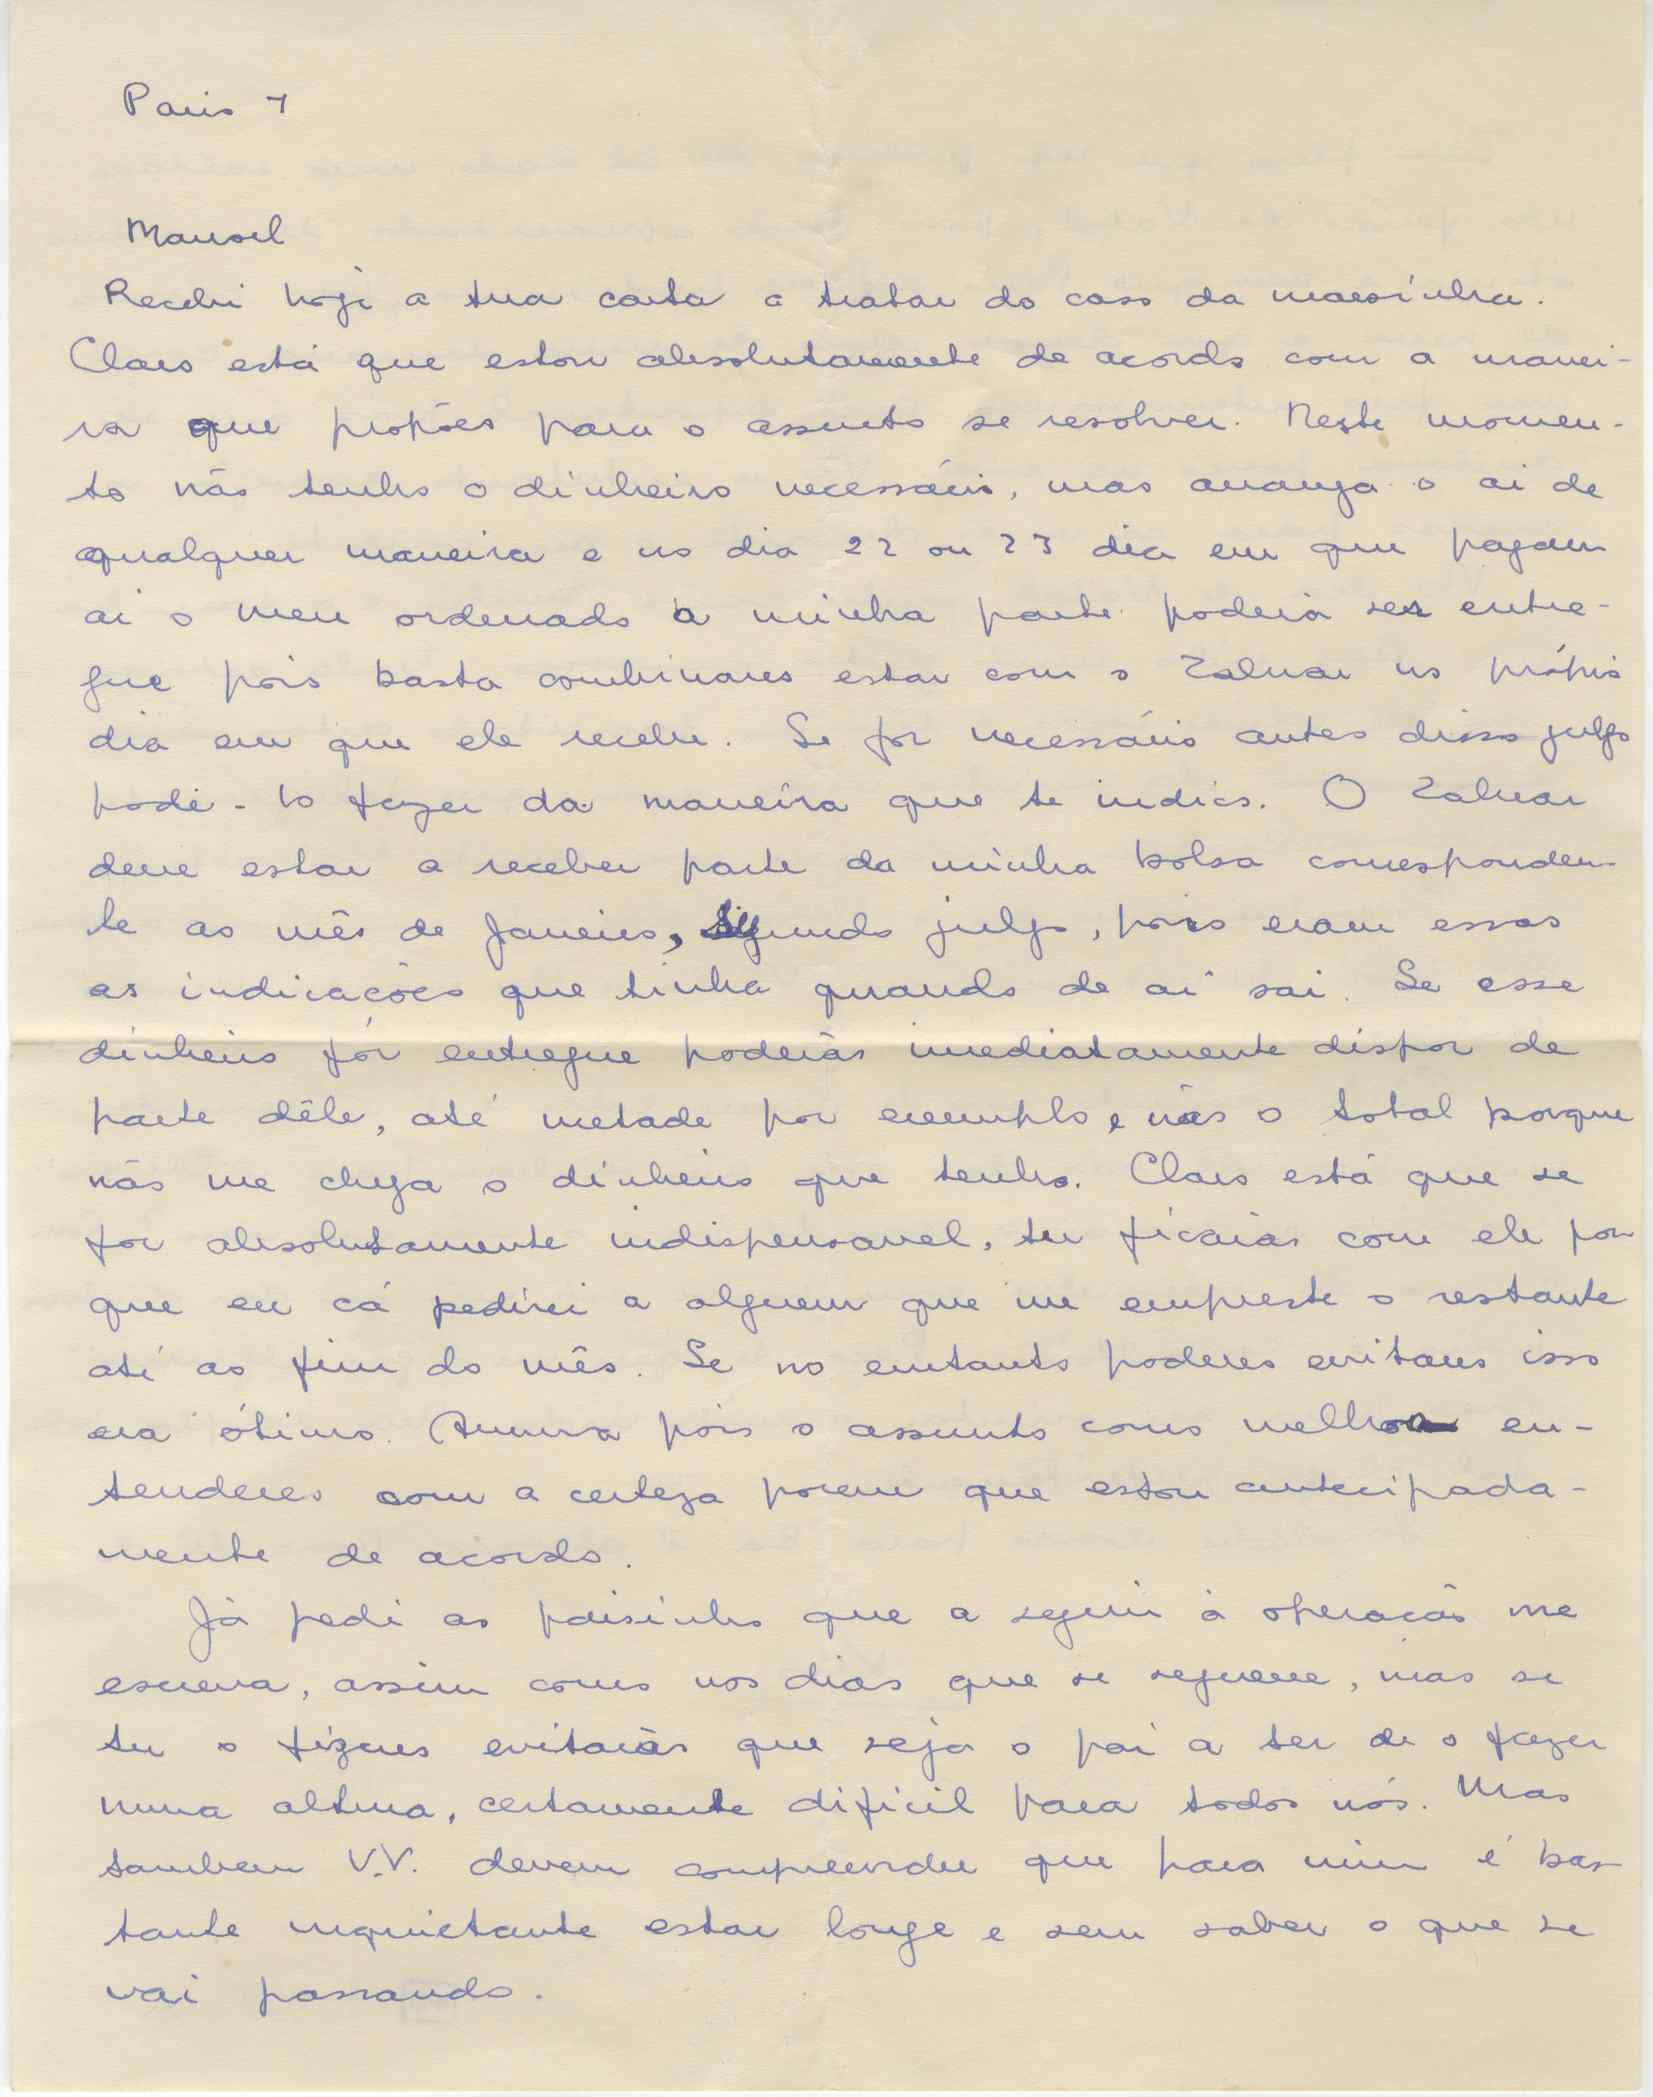 Paris 7
Manoel
Recebi hoje a tua carta a tratar do caso da maesínha.
Claro está que estou absolutamente de acordo com a manei-
ra que propões para o assunto se resolver. Neste momen-
to não tenho o dinheiro necessário, mas arranja-o ai de
qualquer maneira e no dia 22 ou 23 dia em que pagam
ai o meu ordenado a minha parte poderá ser entre-
gue pois basta combinares estar com o Zaluar no próprio
dia em que ele recebe. Se for necessário antes disso julgo
podê-lo fazer da maneira que te indico. O Zaluar
deve estar a receber parte da minha bolsa corresponden-
te ao mês de Janeiro, segundo julgo, pois eram essas
as indicações que tinha quando de aí sai. Se esse
dinheiro fôr entregue poderás imediatamente dispor de
parte dêle, até metade por exemplo, e não o total porque
não me chega o dinheiro que tenho. Claro está que se
for absolutamente indispensavel, tu ficarás com ele por
que eu cá pedirei a alguem que me empreste o restante
até ao fim do mês. Se no emtanto poderes evitares isso
era ótimo. Arruma pois o assunto como melhor en-
tenderes com a certeza porem que estou antecipada-
mente de acordo.
Já pedi ao paisinho que a seguir à operação me
escreva, assim como nos dias que se seguem, mas se
tu o fizeres evitarás que seja o pai a ter de o fazer
numa altura, certamente dificil para todos nós. Mas
tambem V.V. devem compreender que para mim é bas-
tante inquietante estar longe e sem saber o que se
vai passando.